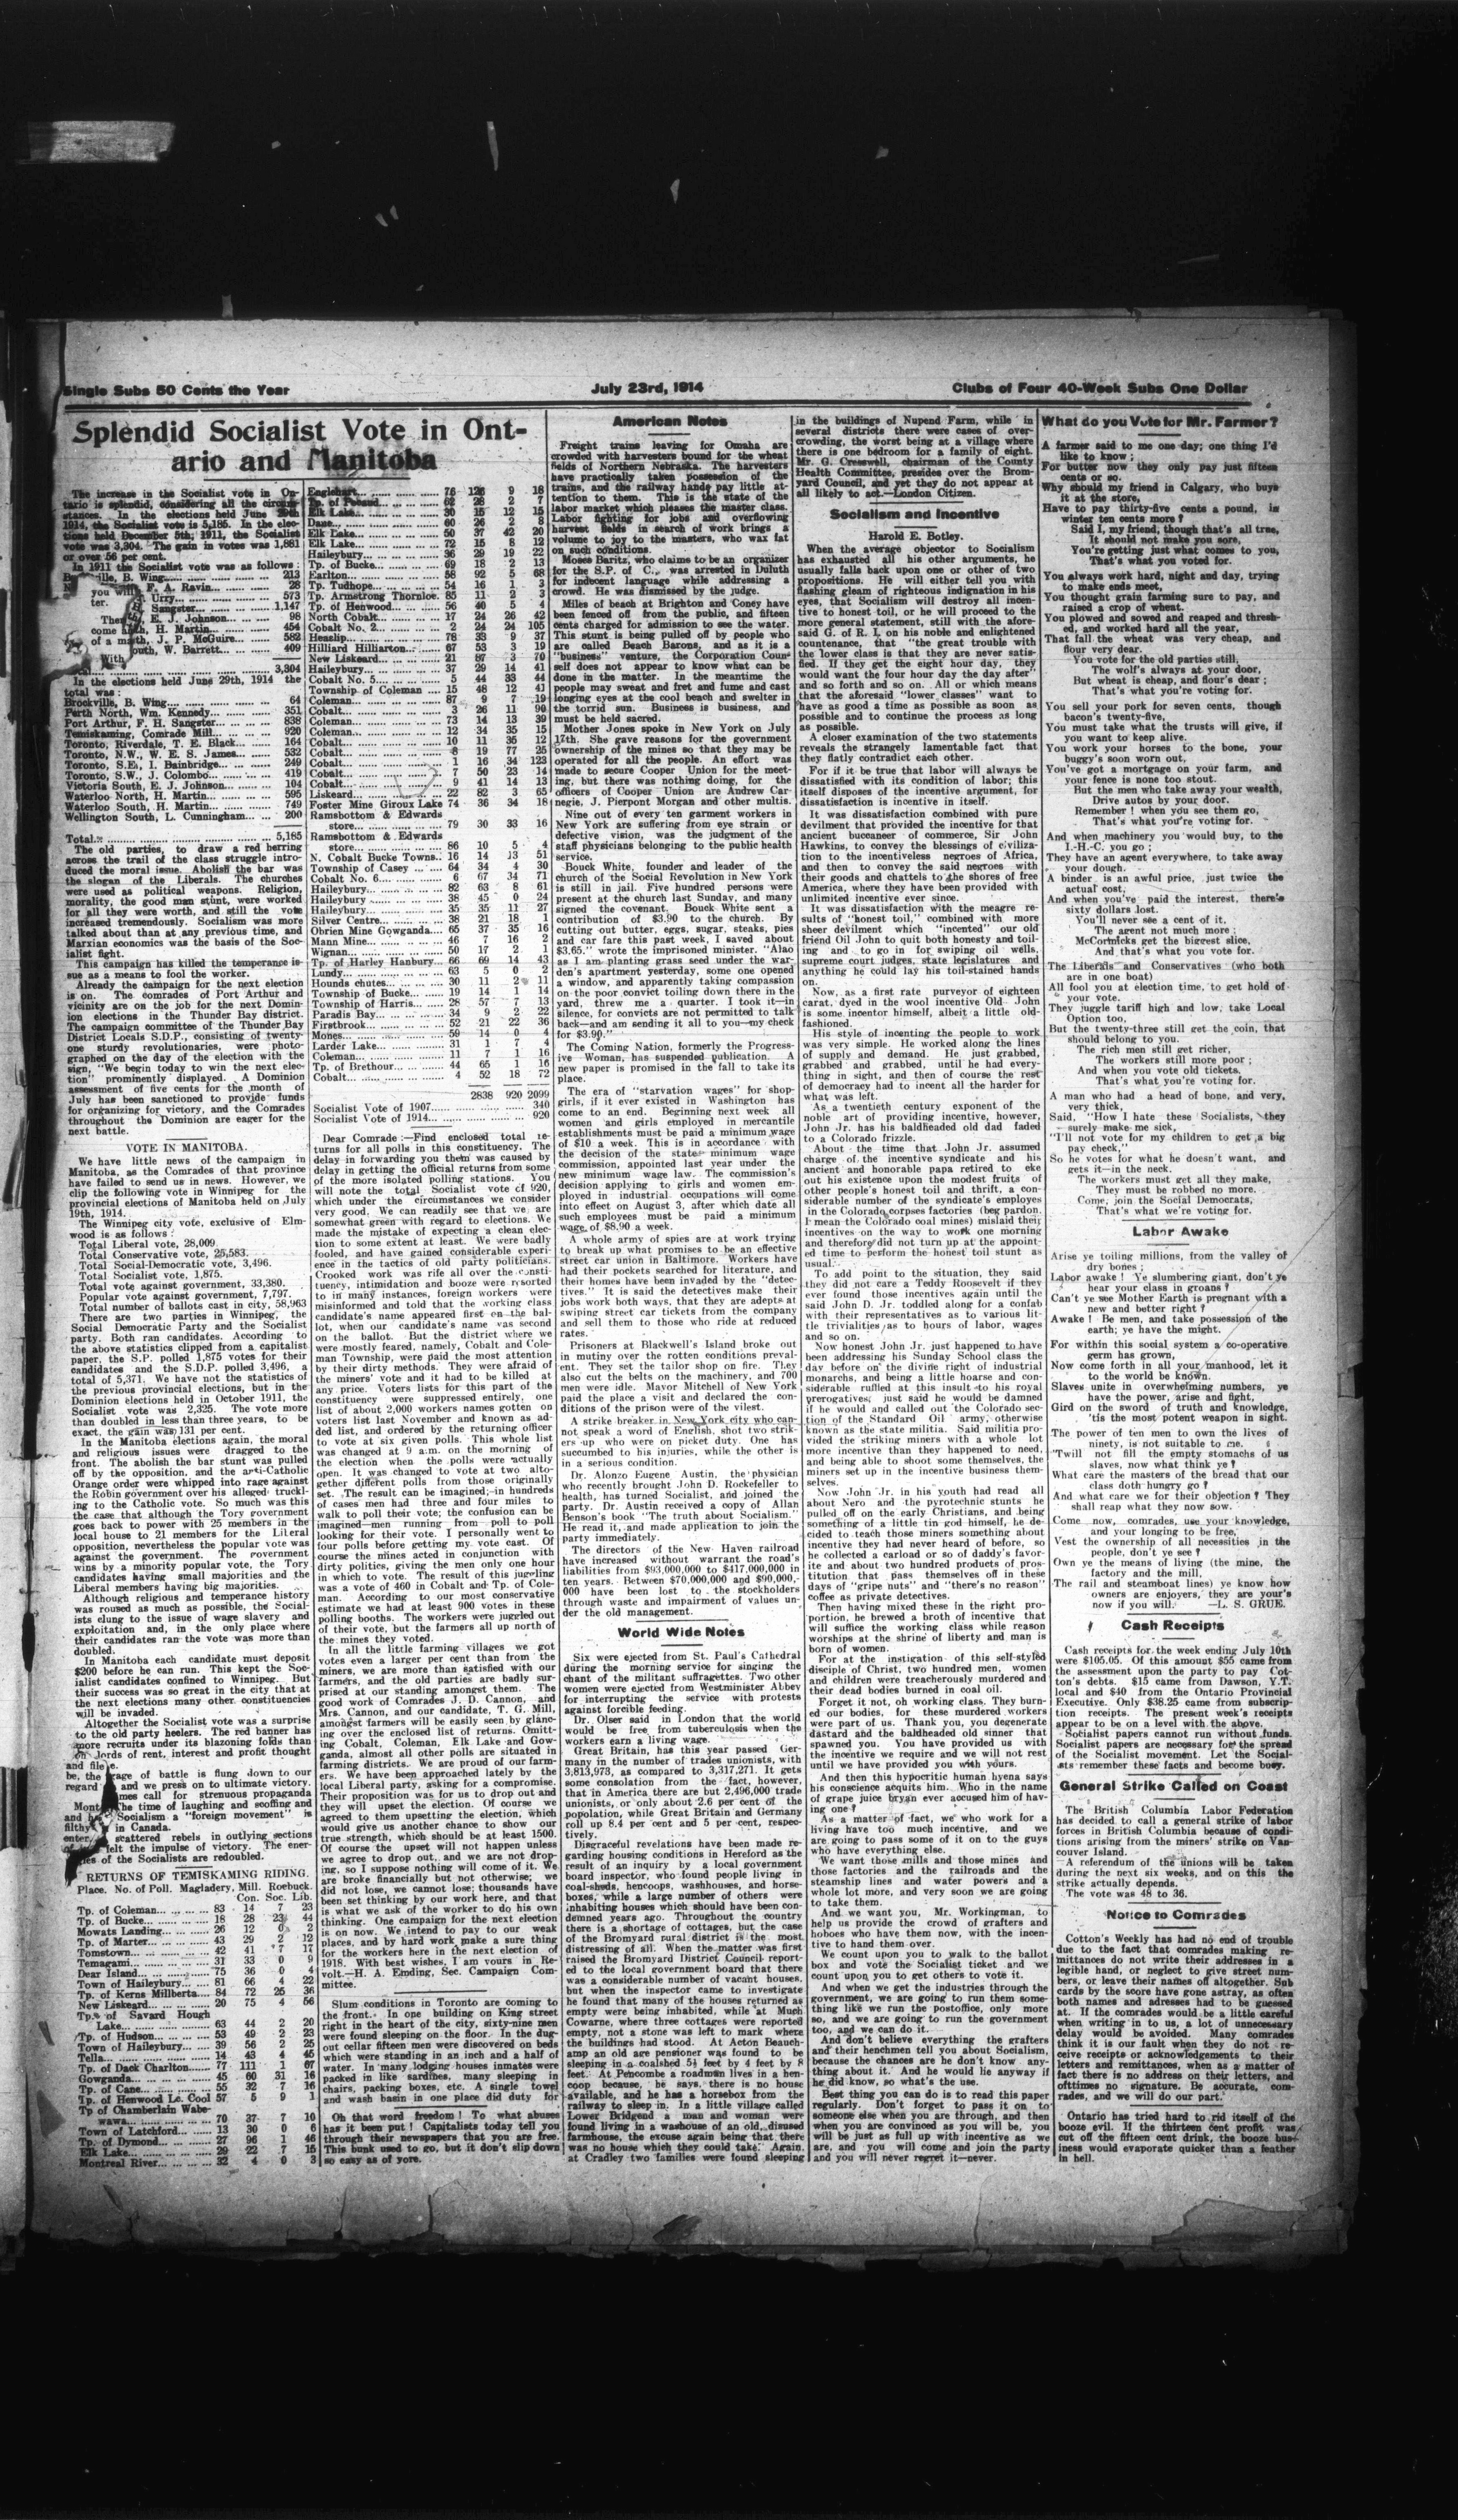 Single Subs 50 Cents the Year
July 23rd, 1914
Clubs of Four 40-Week Subs One Dollar
Splendid Socialist Vote in Ont-
ario and Manitoba
The increase in the Socialist vote in On-
tario is splendid, considering all the circum-
stances. In the elections held June 29th
1914, the Socialist vote is 5,185. In the elec-
tions held December 5th, 1911, the Socialist
vote was 3,304. The gain in votes was 1,881
or over 56 per cent.
In 1911 the Socialist vote was as follows:
B. Wing... 213
F. A. Ravin... 26
Urry... 573
Sangster... 1,147
E. J. Johnson... 98
H. Martin... 454
J. P. McGuire... 582
outh, W. Barrett... 409
3,304
In the elections held June 29th, 1914 the
total was:
Brockville, B. Wing... 64
Perth North, Wm. Kennedy... 351
Port Arthur, F. H. Sangster... 838
Temiskaming, Comrade Mill... 920
Toronto, Riverdale, T. E. Black... 164
Toronto, N.W., W. E. S. James... 532
Toronto, S.E., I. Bainbridge... 249
Toronto, S.W., J. Colombo... 419
Victoria South, E. J. Johnson... 104
Waterloo North, H. Martin... 595
Waterloo South, H. Martin... 749
Wellington South, L. Cunningham... 200
Total... 5,185
The old parties, to draw a red herring
across the trail of the class struggle intro-
duced the moral issue. Abolish the bar was
the slogan of the Liberals. The churches
were used as political weapons. Religion,
morality, the good man stunt, were worked
for all they were worth, and still the vote
increased tremendously. Socialism was more
talked about than at any previous time, and
Marxian economics was the basis of the Soc-
ialist fight.
This campaign has killed the temperance is-
sue as a means to fool the worker.
Already the campaign for the next election
is on. The comrades of Port Arthur and
vicinity are on the job for the next Domin-
ion elections in the Thunder Bay district.
The campaign committee of the Thunder Bay
District Locals S.D.P., consisting of twenty-
one sturdy revolutionaries, were photo-
graphed on the day of the election with the
sign, "We begin today to win the next elec-
tion" prominently displayed. A Dominion
assessment of five cents for the month of
July has been sanctioned to provide funds
for organizing for victory, and the Comrades
throughout the Dominion are eager for the
next battle.
VOTE IN MANITOBA.
We have little news of the campaign in
Manitoba, as the Comrades of that province
have failed to send us in news. However, we
clip the following vote in Winnipeg for the
provincial elections of Manitoba held on July
19th, 1914.
The Winnipeg city vote, exclusive of Elm-
wood is as follows:
Total Liberal vote, 28,009.
Total Conservative vote, 25,583.
Total Social-Democratic vote, 3,496.
Total Socialist vote, 1,875.
Total vote against government, 33,380.
Popular vote against government, 7,797.
Total number of ballots cast in city, 58,963
There are two parties in Winnipeg, the
Social Democratic Party and the Socialist
party. Both ran candidates. According to
the above statistics clipped from a capitalist
paper, the S.P. polled 1,875 votes for their
candidates and the S.D.P. polled 3,496, a
total of 5,371. We have not the statistics of
the previous provincial elections, but in the
Dominion elections held in October 1911, the
Socialist vote was 2,325. The vote more
than doubled in less than three years, to be
exact, the gain was 131 per cent.
In the Manitoba elections again, the moral
and religious issues were dragged to the
front. The abolish the bar stunt was pulled
off by the opposition, and the anti-Catholic
Orange order were whipped into rage against
the Robin government over his alleged truckl-
ing to the Catholic vote. So much was this
the case that although the Tory government
goes back to power with 25 members in the
local house to 21 members for the Liberal
opposition, nevertheless the popular vote was
against the government. The government
wins by a minority popular vote, the Tory
candidates having small majorities and the
Liberal members having big majorities.
Although religious and temperance history
was roused as much as possible, the Social-
ists clung to the issue of wage slavery and
exploitation and, in the only place where
their candidates ran the vote was more than
doubled.
In Manitoba each candidate must deposit
$200 before he can run. This kept the Soc-
ialist candidates confined to Winnipeg. But
their success was so great in the city that at
the next elections many other constituencies
will be invaded.
Altogether the Socialist vote was a surprise
to the old party heelers. The red banner has
more recruits under its blazoning folds than
lords of rent, interest and profit thought
be, the gage of battle is flung down to our
and we press on to ultimate victory.
call for strenuous propaganda
The time of laughing and scoffing and
Socialism a "foreign movement" is
in Canada.
scattered rebels in outlying sections
felt the impulse of victory. The ener-
of the Socialists are redoubled.
RETURNS OF TEMISKAMING RIDING.
Place. No. of Poll. Magladery, Mill. Roebuck.
Con. Soc. Lib.
Tp. of Coleman... 83 14 7 23
Tp. of Bucke... 18 28 23 44
Mowats Landing... 26 12 0 2
Tp. of Marter... 43 29 2 12
Tomstown... 42 41 7 17
Temagami... 31 33 0 9
Dear Island... 75 36 0 4
Town of Haileybury... 81 66 4 22
Tp. of Kerns Millberta... 84 72 25 36
New Liskeard... 20 75 4 56
Tp. of Savard Hough
Lake... 63 44 2 20
Tp. of Hudson... 53 49 2 23
Town of Haileybury... 39 56 2 25
Tella... 14 43 4 45
Tp. of Dack Charlton... 77 111 1 67
Gowganda... 45 60 31 16
Tp. of Cane... 55 32 7 16
Tp. of Henwood Le. Cool 57 5 9 1
Tp of Chamberlain Wabe-
wawa... 70 37 7 10
Town of Latchford... 13 30 0 6
Tp. of Dymond... 27 96 1 46
Elk Lake... 29 22 7 15
Montreal River... 32 4 0 3
Englehart... 76 126 9 18
Tp. of... 62 28 2 7
Elk Lake... 30 15 12 15
Dane... 60 26 2 8
Elk Lake... 50 37 42 20
Elk Lake... 72 15 8 12
Haileybury... 36 29 19 22
Tp. of Bucke... 69 18 2 13
Earlton... 58 92 5 68
Tp. Tudhope... 54 16 1 3
Tp. Armstrong Thornloe. 85 11 2 3
Tp. of Henwood... 56 40 5 4
North Cobalt... 17 24 26 42
Cobalt No. 2... 2 24 24 105
Heaslip... 78 33 9 37
Hilliard Hilliarton... 67 53 3 19
New Liskeard... 21 87 3 70
Haileybury... 37 29 14 41
Cobalt No. 5... 5 44 33 44
Township of Coleman... 15 48 12 41
Coleman... 87 9 7 19
Cobalt... 3 26 11 90
Coleman... 73 14 13 39
Coleman... 12 34 35 15
Cobalt... 10 11 35 12
Cobalt... 8 19 77 25
Cobalt... 1 16 34 123
Cobalt... 7 50 23 14
Cobalt... 9 41 14 13
Liskeard... 22 82 3 65
Foster Mine Giroux Lake 74 36 34 18
Ramsbottom & Edwards
store... 79 30 33 16
Ramsbottom & Edwards
store... 86 10 5 4
N. Cobalt Bucke Towns.. 16 14 13 51
Township of Casey... 64 34 4 30
Cobalt No. 6... 6 67 34 71
Haileybury... 82 63 8 61
Haileybury... 38 45 0 24
Haileybury... 35 35 11 27
Silver Centre... 38 21 18 1
Obrien Mine Gowganda... 65 37 35 16
Mann Mine... 46 7 16 2
Wignan... 50 17 2 1
Tp. of Harley Hanbury... 66 69 14 43
Lundy... 63 5 0 2
Hounds chutes... 30 11 2 11
Township of Bucke... 19 14 1 14
Township of Harris... 28 57 7 13
Paradis Bay... 34 9 2 22
Firstbrook... 52 21 22 36
Mones... 59 14 0 4
Larder Lake... 31 1 7 4
Coleman... 11 7 1 16
Tp. of Brethour... 44 65 1 16
Cobalt... 4 52 18 72
2838 920 2099
Socialist Vote of 1907... 340
Socialist Vote of 1914... 920
Dear Comrade:—Find enclosed total re-
turns for all polls in this constituency. The
delay in forwarding you them was caused by
delay in getting the official returns from some
of the more isolated polling stations. You
will note the total Socialist vote of 920,
which under the circumstances we consider
very good. We can readily see that we are
somewhat green with regard to elections. We
made the mistake of expecting a clean elec-
tion to some extent at least. We were badly
fooled, and have gained considerable experi-
ence in the tactics of old party politicians.
Crooked work was rife all over the consti-
tuency, intimidation and booze were resorted
to in many instances, foreign workers were
misinformed and told that the working class
candidate's name appeared first on the bal-
lot, when our candidate's name was second
on the ballot. But the district where we
were mostly feared, namely, Cobalt and Cole-
man Township, were paid the most attention
by their dirty methods. They were afraid of
the miners' vote and it had to be killed at
any price. Voters lists for this part of the
constituency were suppressed entirely, one
list of about 2,000 workers names gotten on
voters list last November and known as ad-
ded list, and ordered by the returning officer
to vote at six given polls. This whole list
was changed at 9 a.m. on the morning of
the election when the polls were actually
open. It was changed to vote at two alto-
gether different polls from those originally
set. The result can be imagined; in hundreds
of cases men had three and four miles to
walk to poll their vote; the confusion can be
imagined—men running from poll to poll
looking for their vote. I personally went to
four polls before getting my vote cast. Of
course the mines acted in conjunction with
dirty politics, giving the men only one hour
in which to vote. The result of this juggling
was a vote of 460 in Cobalt and Tp. of Cole-
man. According to our most conservative
estimate we had at least 900 votes in these
polling booths. The workers were juggled out
of their vote, but the farmers all up north of
the mines they voted.
In all the little farming villages we got
votes even a larger per cent than from the
miners, we are more than satisfied with our
farmers, and the old parties are badly sur-
prised at our standing amongst them. The
good work of Comrades J. D. Cannon, and
Mrs. Cannon, and our candidate, T. G. Mill,
amongst farmers will be easily seen by glanc-
ing over the enclosed list of returns. Omitt-
ing Cobalt, Coleman, Elk Lake and Gow-
ganda, almost all other polls are situated in
farming districts. We are proud of our farm-
ers. We have been approached lately by the
local Liberal party, asking for a compromise.
Their proposition was for us to drop out and
they will upset the election. Of course we
agreed to them upsetting the election, which
would give us another chance to show our
true strength, which should be at least 1500.
Of course the upset will not happen unless
we agree to drop out, and we are not drop-
ing, so I suppose nothing will come of it. We
are broke financially but not otherwise; we
did not lose, we cannot lose; thousands have
been set thinking by our work here, and that
is what we ask of the worker to do his own
thinking. One campaign for the next election
is on now. We intend to pay to our weak
places, and by hard work make a sure thing
for the workers here in the next election of
1918. With best wishes, I am yours in Re-
volt.—H. A. Emding, Sec. Campaign Com-
mittee.
Slum conditions in Toronto are coming to
the front. In one building on King street
right in the heart of the city, sixty-nine men
were found sleeping on the floor. In the dug-
out cellar fifteen men were discovered on beds
which were standing in an inch and a half of
water. In many lodging houses inmates were
packed in like sardines, many sleeping in
chairs, packing boxes, etc. A single towel
and wash basin in one place did duty for
Oh that word freedom! To what abuses
has it been put! Capitalists today tell you
through their newspapers that you are free.
This bunk used to go, but it don't slip down
so easy as of yore.
American Notes
Freight trains leaving for Omaha are
crowded with harvesters bound for the wheat
fields of Northern Nebraska. The harvesters
have practically taken possession of the
trains, and the railway hands pay little at-
tention to them. This is the state of the
labor market which pleases the master class.
Labor fighting for jobs and overflowing
harvest fields in search of work brings a
volume to joy to the masters, who wax fat
on such conditions.
Moses Baritz, who claims to be an organizer
for the S.P. of C., was arrested in Duluth
for indecent language while addressing a
crowd. He was dismissed by the judge.
Miles of beach at Brighton and Coney have
been fenced off from the public, and fifteen
cents charged for admission to see the water.
This stunt is being pulled off by people who
are called Beach Barons, and as it is a
"business" venture, the Corporation Coun-
self does not appear to know what can be
done in the matter. In the meantime the
people may sweat and fret and fume and cast
longing eyes at the cool beach and swelter in
the torrid sun. Business is business, and
must be held sacred.
Mother Jones spoke in New York on July
17th. She gave reasons for the government
ownership of the mines so that they may be
operated for all the people. An effort was
made to secure Cooper Union for the meet-
ing, but there was nothing doing, for the
officers of Cooper Union are Andrew Car-
negie, J. Pierpont Morgan and other multis.
Nine out of every ten garment workers in
New York are suffering from eye strain or
defective vision, was the judgment of the
staff physicians belonging to the public health
service.
Bouck White, founder and leader of the
church of the Social Revolution in New York
is still in jail. Five hundred persons were
present at the church last Sunday, and many
signed the covenant. Bouck White sent a
contribution of $3.90 to the church. By
cutting out butter, eggs, sugar, steaks, pies
and car fare this past week, I saved about
$3.65." wrote the imprisoned minister. "Alao
as I am planting grass seed under the war-
den's apartment yesterday, some one opened
a window, and apparently taking compassion
on the poor convict toiling down there in the
yard, threw me a quarter. I took it—in
silence, for convicts are not permitted to talk
back—and am sending it all to you—my check
for $3.90."
The Coming Nation, formerly the Progress-
ive Woman, has suspended publication. A
new paper is promised in the fall to take its
place.
The era of "starvation wages" for shop-
girls, if it ever existed in Washington has
come to an end. Beginning next week all
women and girls employed in mercantile
establishments must be paid a minimum wage
of $10 a week. This is in accordance with
the decision of the state minimum wage
commission, appointed last year under the
new minimum wage law. The commission's
decision applying to girls and women em-
ployed in industrial occupations will come
into effect on August 3, after which date all
such employees must be paid a minimum
wage of $8.90 a week.
A whole army of spies are at work trying
to break up what promises to be an effective
street car union in Baltimore. Workers have
had their pockets searched for literature, and
their homes have been invaded by the "detec-
tives." It is said the detectives make their
jobs work both ways, that they are adepts at
swiping street car tickets from the company
and sell them to those who ride at reduced
rates.
Prisoners at Blackwell's Island broke out
in mutiny over the rotten conditions preval-
ent. They set the tailor shop on fire. They
also cut the belts on the machinery, and 700
men were idle. Mayor Mitchell of New York
paid the place a visit and declared the con-
ditions of the prison were of the vilest.
A strike breaker in New York city who can-
not speak a word of English, shot two strik-
ers up who were on picket duty. One has
succumbed to his injuries, while the other is
in a serious condition.
Dr. Alonzo Eugene Austin, the physician
who recently brought John D. Rockefeller to
health, has turned Socialist, and joined the
party. Dr. Austin received a copy of Allan
Benson's book "The truth about Socialism."
He read it, and made application to join the
party immediately.
The directors of the New Haven railroad
have increased without warrant the road's
liabilities from $93,000,000 to $417,000,000 in
ten years. Between $70,000,000 and $90,000,-
000 have been lost to the stockholders
through waste and impairment of values un-
der the old management.
World Wide Notes
Six were ejected from St. Paul's Cathedral
during the morning service for singing the
chant of the militant suffragettes. Two other
women were ejected from Westminister Abbey
for interrupting the service with protests
against forcible feeding.
Dr. Olser said in London that the world
would be free from tuberculosis when the
workers earn a living wage.
Great Britain, has this year passed Ger-
many in the number of trades unionists, with
3,813,973, as compared to 3,317,271. It gets
some consolation from the fact, however,
that in America there are but 2,496,000 trade
unionists, or only about 2.6 per cent of the
population, while Great Britain and Germany
roll up 8.4 per cent and 5 per cent, respec-
tively.
Disgraceful revelations have been made re-
garding housing conditions in Hereford as the
result of an inquiry by a local government
board inspector, who found people living in
coal-sheds, hencoops, washhouses, and horse-
boxes, while a large number of others were
inhabiting houses which should have been con-
demned years ago. Throughout the country
there is a shortage of cottages, but the case
of the Bromyard rural district is the most
distressing of all. When the matter was first
raised the Bromyard District Council report-
ed to the local government board that there
was a considerable number of vacant houses,
but when the inspector came to investigate
he found that many of the houses returned as
empty were being inhabited, while at Much
Cowarne, where three cottages were reported
empty, not a stone was left to mark where
the buildings had stood. At Acton Beauch-
amp an old age pensioner was found to be
sleeping in a coalshed 5½ feet by 4 feet by 8
feet. At Pencombe a roadman lives in a hen-
coop because, he says, there is no house
available, and he has a horsebox from the
railway to sleep in. In a little village called
Lower Bridgend a man and woman were
found living in a washouse of an old, disused
farmhouse, the excuse again being that there
was no house which they could take. Again,
at Cradley two families were found sleeping
in the buildings of Nupend Farm, while in
several districts there were cases of over-
crowding, the worst being at a village where
there is one bedroom for a family of eight.
Mr. G. Cresswell, chairman of the County
Health Committee, presides over the Brom-
yard Council, and yet they do not appear at
all likely to act.—London Citizen.
Socialism and Incentive
Harold E. Botley.
When the average objector to Socialism
has exhausted all his other arguments, he
usually falls back upon one or other of two
propositions. He will either tell you with
flashing gleam of righteous indignation in his
eyes, that Socialism will destroy all incen-
tive to honest toil, or he will proceed to the
more general statement, still with the afore-
said G. of R. I. on his noble and enlightened
countenance, that "the great trouble with
the lower class is that they are never satis-
fied. If they get the eight hour day, they
would want the four hour day the day after"
and so forth and so on. All or which means
that the aforesaid "lower classes" want to
have as good a time as possible as soon as
possible and to continue the process as long
as possible.
A closer examination of the two statements
reveals the strangely lamentable fact that
they flatly contradict each other.
For if it be true that labor will always be
dissatisfied with its condition of labor; this
itself disposes of the incentive argument, for
dissatisfaction is incentive in itself.
It was dissatisfaction combined with pure
devilment that provided the incentive for that
ancient buccaneer of commerce, Sir John
Hawkins, to convey the blessings of civiliza-
tion to the incentiveless negroes of Africa,
and then to convey the said negroes with
their goods and chattels to the shores of free
America, where they have been provided with
unlimited incentive ever since.
It was dissatisfaction with the meagre re-
sults of "honest toil," combined with more
sheer devilment which "incented" our old
friend Oil John to quit both honesty and toil-
ing and to go in for swiping oil wells,
supreme court judges, state legislatures and
anything he could lay his toil-stained hands
on.
Now, as a first rate purveyor of eighteen
carat, dyed in the wool incentive Old John
is some incentor himself, albeit a little old-
fashioned.
His style of incenting the people to work
was very simple. He worked along the lines
of supply and demand. He just grabbed,
grabbed and grabbed, until he had every-
thing in sight, and then of course the rest
of democracy had to incent all the harder for
what was left.
As a twentieth century exponent of the
noble art of providing incentive, however,
John Jr. has his baldheaded old dad faded
to a Colorado frizzle.
About the time that John Jr. assumed
charge of the incentive syndicate and his
ancient and honorable papa retired to eke
out his existence upon the modest fruits of
other people's honest toil and thrift, a con-
siderable number of the syndicate's employes
in the Colorado corpses factories (beg pardon.
I mean the Colorado coal mines) mislaid their
incentives on the way to work one morning
and therefore did not turn up at the appoint-
ed time to perform the honest toil stunt as
usual.
To add point to the situation, they said
they did not care a Teddy Roosevelt if they
ever found those incentives again until the
said John D. Jr. toddled along for a confab
with their representatives as to various lit-
tle trivialities as to hours of labor, wages
and so on.
Now honest John Jr. just happened to have
been addressing his Sunday School class the
day before on the divine right of industrial
monarchs, and being a little hoarse and con-
siderable ruffled at this insult to his royal
prerogatives, just said he would be damned
if he would and called out the Colorado sec-
tion of the Standard Oil army, otherwise
known as the state militia. Said militia pro-
vided the striking miners with a whole lot
more incentive than they happened to need,
and being able to shoot some themselves, the
miners set up in the incentive business them-
selves.
Now John Jr. in his youth had read all
about Nero and the pyrotechnic stunts he
pulled off on the early Christians, and being
something of a little tin god himself, he de-
cided to teach those miners something about
incentive they had never heard of before, so
he collected a carload or so of daddy's favor-
ite and about two hundred products of pros-
titution that pass themselves off in these
days of "gripe nuts" and "there's no reason"
coffee as private detectives.
Then having mixed these in the right pro-
portion, he brewed a broth of incentive that
will suffice the working class while reason
worships at the shrine of liberty and man is
born of women.
For at the instigation of this self-styled
disciple of Christ, two hundred men, women
and children were treacherously murdered and
their dead bodies burned in coal oil.
Forget it not, oh working class. They burn-
ed our bodies, for these murdered workers
were part of us. Thank you, you degenerate
dastard and the baldheaded old sinner that
spawned you. You have provided us with
the incentive we require and we will not rest
until we have provided you with yours.
And then this hypocritic human hyena says
his conscience acquits him. Who in the name
of grape juice bryan ever accused him of hav-
ing one?
As a matter of fact, we who work for a
living have too much incentive, and we
are going to pass some of it on to the guys
who have everything else.
We want those mills and those mines and
those factories and the railroads and the
steamship lines and water powers and a
whole lot more, and very soon we are going
to take them.
And we want you, Mr. Workingman, to
help us provide the crowd of grafters and
hoboes who have them now, with the incen-
tive to hand them over.
We count upon you to walk to the ballot
box and vote the Socialist ticket and we
count upon you to get others to vote it.
And when we get the industries through the
government, we are going to run them some-
thing like we run the postoffice, only more
so, and we are going to run the government
too, and we can do it.
And don't believe everything the grafters
and their henchmen tell you about Socialism,
because the chances are he don't know any-
thing about it. And he would lie anyway if
he did know, so what's the use.
Best thing you can do is to read this paper
regularly. Don't forget to pass it on to
someone else when you are through, and then
when you are convinced as you will be, you
will be just as full up with incentive as we
are, and you will come and join the party
and you will never regret it—never.
What do you Vote for Mr. Farmer?
A farmer said to me one day; one thing I'd
like to know;
For butter now they only pay just fifteen
cents or so.
Why should my friend in Calgary, who buys
it at the store,
Have to pay thirty-five cents a pound, in
winter ten cents more?
Said I, my friend, though that's all true,
It should not make you sore,
You're getting just what comes to you,
That's what you voted for.
You always work hard, night and day, trying
to make ends meet,
You thought grain farming sure to pay, and
raised a crop of wheat.
You plowed and sowed and reaped and thresh-
ed, and worked hard all the year,
That fall the wheat was very cheap, and
flour very dear.
You vote for the old parties still,
The wolf's always at your door,
But wheat is cheap, and flour's dear;
That's what you're voting for.
You sell your pork for seven cents, though
bacon's twenty-five,
You must take what the trusts will give, if
you want to keep alive.
You work your horses to the bone, your
buggy's soon worn out,
You've got a mortgage on your farm, and
your fence is none too stout.
But the men who take away your wealth,
Drive autos by your door.
Remember! when you see them go,
That's what you're voting for.
And when machinery you would buy, to the
I.-H.-C. you go;
They have an agent everywhere, to take away
your dough.
A binder is an awful price, just twice the
actual cost,
And when you've paid the interest, there's
sixty dollars lost.
You'll never see a cent of it,
The agent not much more;
McCormicks get the biggest slice,
And that's what you vote for.
The Liberals and Conservatives (who both
are in one boat)
All fool you at election time, to get hold of
your vote.
They juggle tariff high and low, take Local
Option too,
But the twenty-three still get the coin, that
should belong to you.
The rich men still get richer,
The workers still more poor;
And when you vote old tickets,
That's what you're voting for.
A man who had a head of bone, and very,
very thick,
Said, "How I hate these Socialists, they
surely make me sick,
"I'll not vote for my children to get a big
pay check,"
So he votes for what he doesn't want, and
gets it—in the neck.
The workers must get all they make,
They must be robbed no more.
Come, join the Social Democrats,
That's what we're voting for.
Labor Awake
Arise ye toiling millions, from the valley of
dry bones;
Labor awake! Ye slumbering giant, don't ye
hear your class in groans?
Can't ye see Mother Earth is pregnant with a
new and better right?
Awake! Be men, and take possession of the
earth; ye have the might.
For within this social system a co-operative
germ has grown,
Now come forth in all your manhood, let it
to the world be known.
Slaves unite in overwhelming numbers, ye
have power, arise and fight,
Gird on the sword of truth and knowledge,
'tis the most potent weapon in sight.
The power of ten men to own the lives of
ninety, is not suitable to me.
'Twill not fill the empty stomachs of us
slaves, now what think ye?
What care the masters of the bread that our
class doth hungry go?
And what care we for their objection? They
shall reap what they now sow.
Come now, comrades, use your knowledge,
and your longing to be free,
Vest the ownership of all necessities in the
people, don't ye see?
Own ye the means of living (the mine, the
factory and the mill,
The rail and steamboat lines) ye know how
owners are enjoyers, they are your's
now if you will. —L. S. GRUE.
Cash Receipts
Cash receipts for the week ending July 10th
were $105.05. Of this amount $55 came from
the assessment upon the party to pay Cot-
ton's debts. $15 came from Dawson, Y.T.
local and $40 from the Ontario Provincial
Executive. Only $38.25 came from subscrip-
tion receipts. The present week's receipts
appear to be on a level with the above.
Socialist papers cannot run without funds.
Socialist papers are necessary for the spread
of the Socialist movement. Let the Social-
ists remember these facts and become busy.
General Strike Called on Coast
The British Columbia Labor Federation
has decided to call a general strike of labor
forces in British Columbia because of condi-
tions arising from the miners' strike on Van-
couver Island.
A referendum of the unions will be taken
during the next six weeks, and on this the
strike actually depends.
The vote was 48 to 36.
Notice to Comrades
Cotton's Weekly has had no end of trouble
due to the fact that comrades making re-
mittances do not write their addresses in a
legible hand, or neglect to give street num-
bers, or leave their names off altogether. Sub
cards by the score have gone astray, as often
both names and adresses had to be guessed
at. If the comrades would be a little careful
when writing in to us, a lot of unnecessary
delay would be avoided. Many comrades
think it is our fault when they do not re-
ceive receipts or acknowledgements to their
letters and remittances, when as a matter of
fact there is no address on their letters, and
ofttimes no signature. Be accurate, com-
rades, and we will do our part.
Ontario has tried hard to rid itself of the
booze evil. If the thirteen cent profit was
cut off the fifteen cent drink, the booze bus-
iness would evaporate quicker than a feather
in hell.